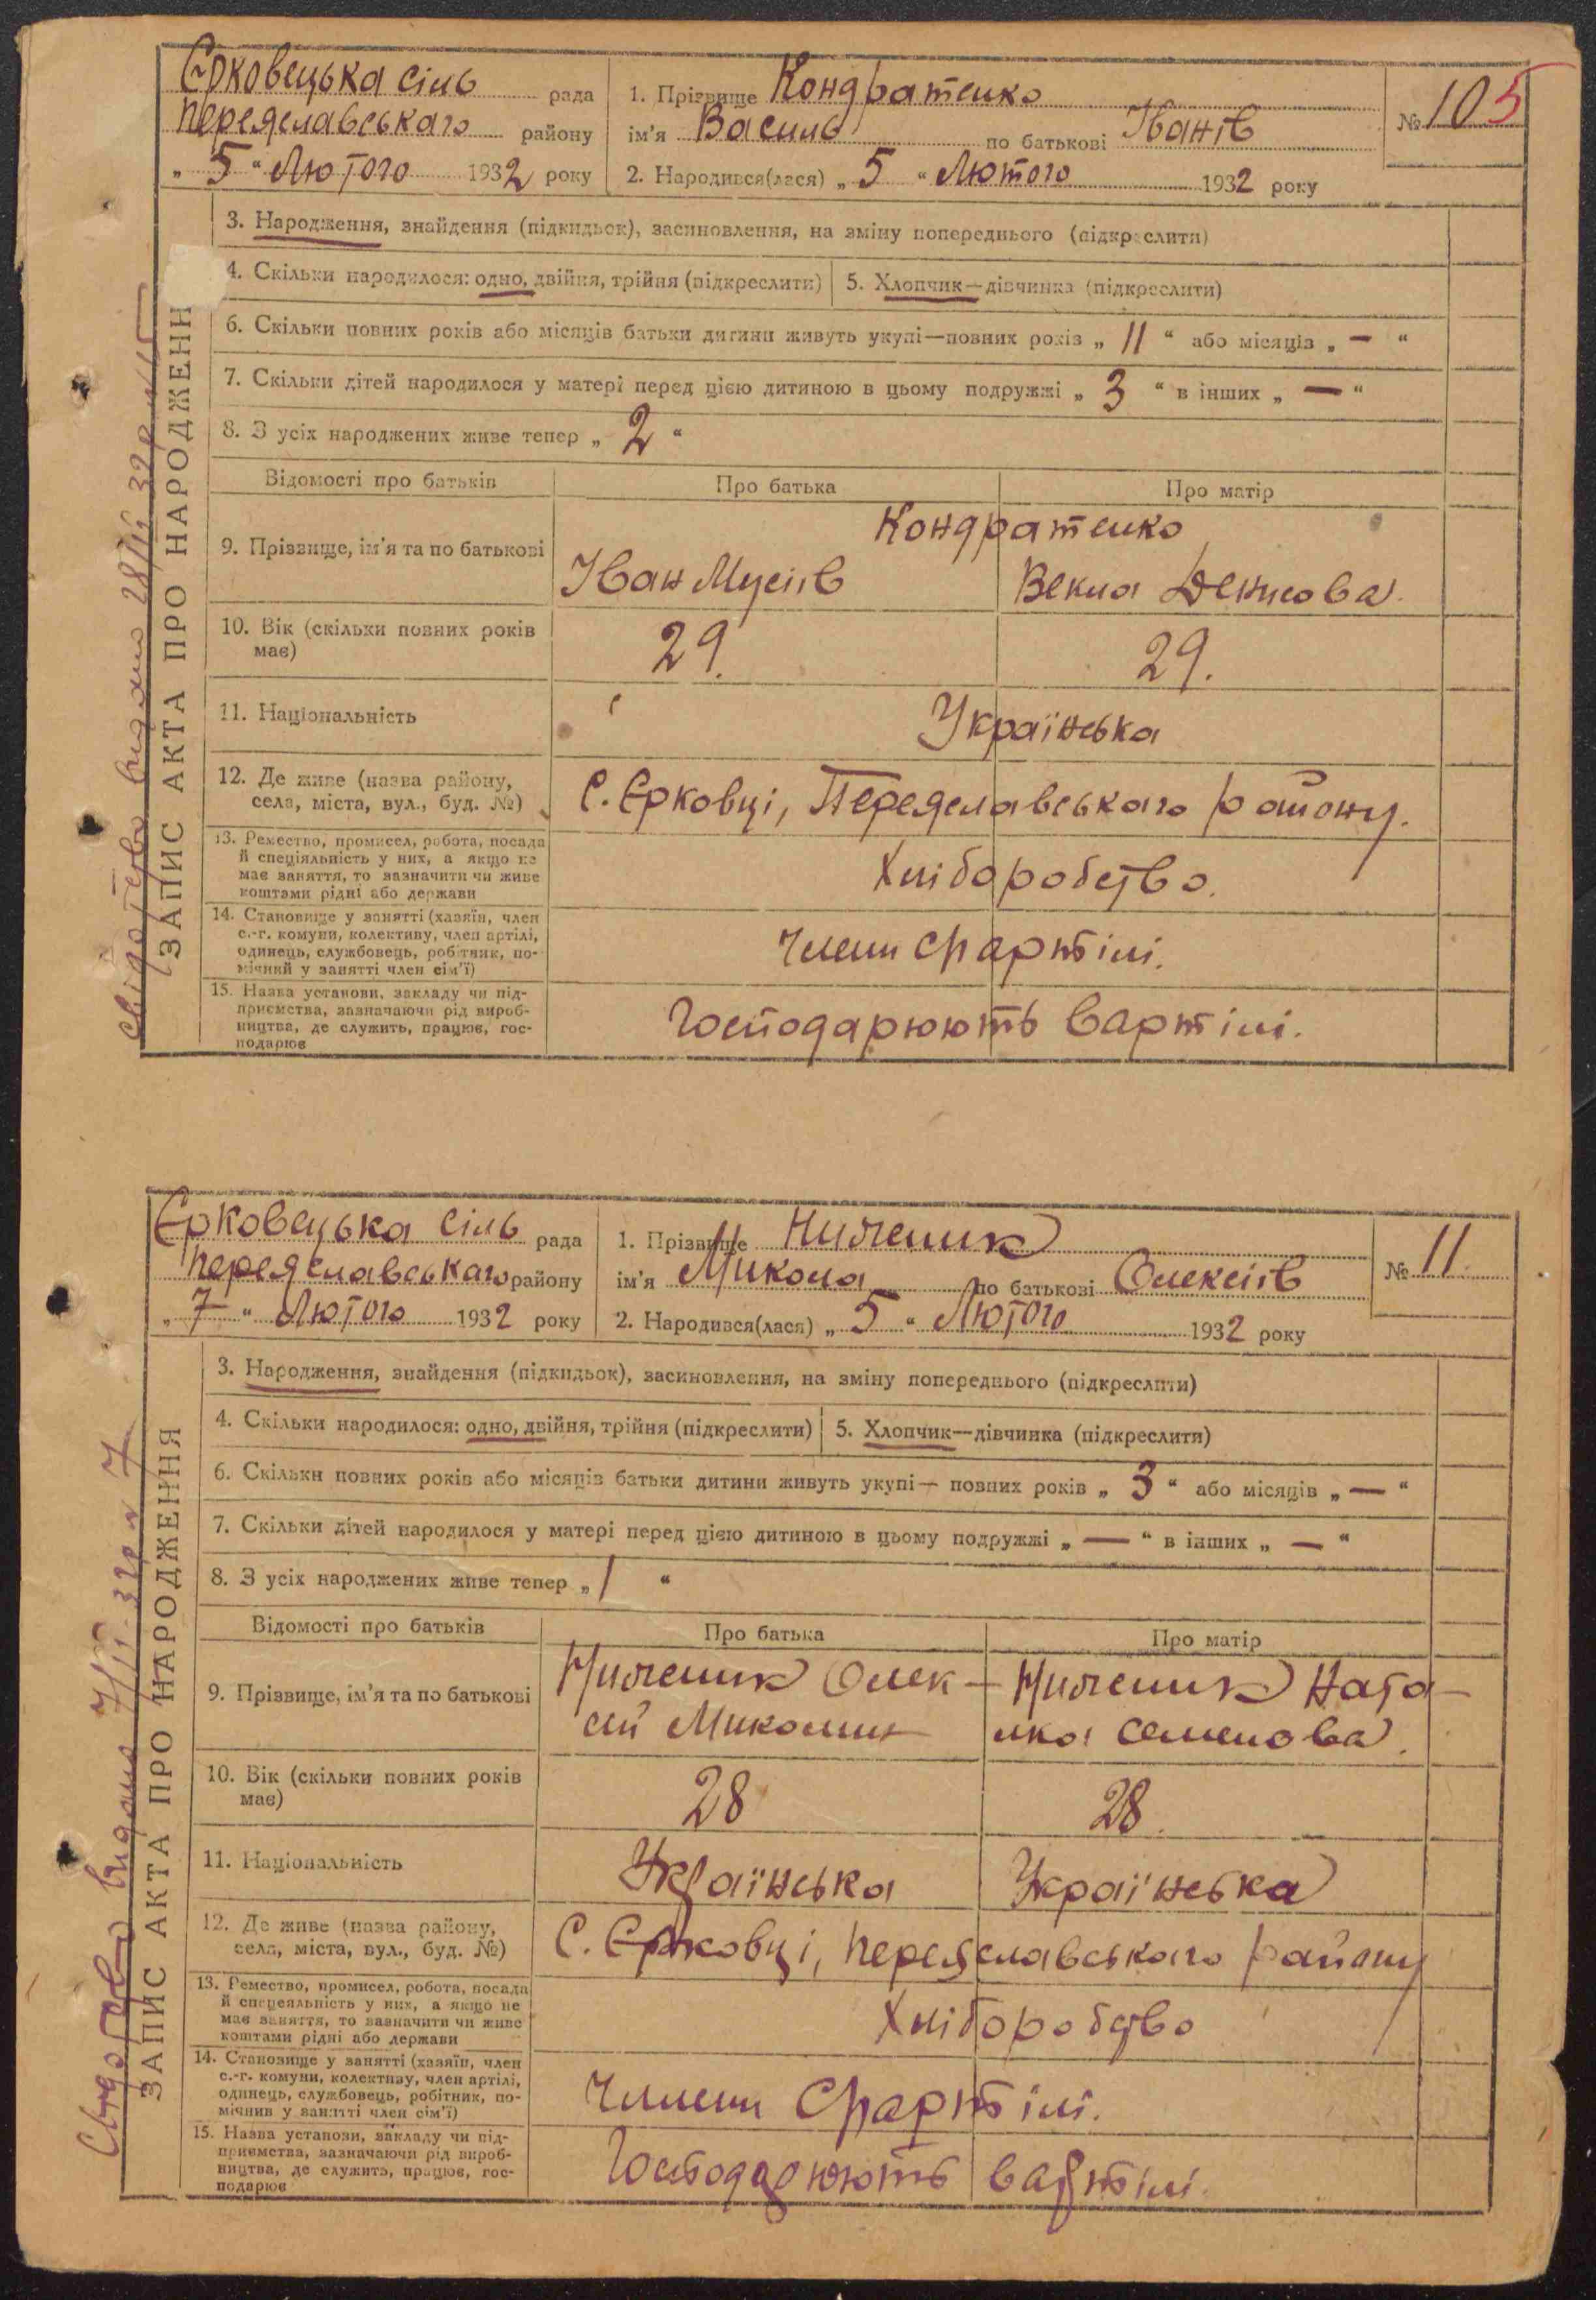 Єрковецька сіль рада
Переяславського району
„ 5 “ Лютого 1932 року
1. Прізвище Кондратенко
ім'я Василь по батькові Іванів
2. Народився(лася) „ 5 “ Лютого 1932 року
№ 10 5
ЗАПИС АКТА ПРО НАРОДЖЕНН
3. Народження, знайдення (підкидьок), засиновлення, на зміну попереднього (підкреслити)
4. Скільки народилося: одно, двійня, трійня (підкреслити) 5. Хлопчик—дівчинка (підкреслити)
6. Скільки повних років або місяців батьки дитини живуть укупі—повних років „ 11 “ або місяців „ — “
7. Скільки дітей народилося у матері перед цією дитиною в цьому подружжі „ 3 “ в інших „ — “
8. З усіх народжених живе тепер „ 2 “
Відомості про батьків Про батька Про матір
9. Прізвище, ім'я та по батькові Кондратенко
Іван Мусіїв Векла Денисова.
10. Вік (скільки повних років
має)
29. 29.
11. Національність Українська
12. Де живе (назва району,
села, міста, вул., буд. №)
С. Єрковці, Переяславського району.
13. Ремество, промисел, робота, посада
й спеціяльність у них, а якщо не
має заняття, то зазначити чи живе
коштами рідні або держави
Хліборобство.
14. Становище у занятті (хазяїн, член
с.-г. комуни, колективу, член артілі,
одинець, службовець, робітник, по-
мічний у занятті член сім'ї)
члени артілі.
15. Назва установи, закладу чи під-
приємства, зазначаючи рід вироб-
ництва, де служить, працює, гос-
подарює
Господарюють в артілі.
Свідоцтво видано 28/II 32р
Єрковецька сіль рада
Переяславського району
„ 7 “ Лютого 1932 року
1. Прізвище
ім'я Микола по батькові Олексіїв
2. Народився(лася) „ 5 “ Лютого 1932 року
№ 11
ЗАПИС АКТА ПРО НАРОДЖЕННЯ
3. Народження, знайдення (підкидьок), засиновлення, на зміну попереднього (підкреслити)
4. Скільки народилося: одно, двійня, трійня (підкреслити) 5. Хлопчик—дівчинка (підкреслити)
6. Скільки повних років або місяців батьки дитини живуть укупі— повних років „ 3 “ або місяців „ — “
7. Скільки дітей народилося у матері перед цією дитиною в цьому подружжі „ — “ в інших „ — “
8. З усіх народжених живе тепер „ 1 “
Відомості про батьків Про батька Про матір
9. Прізвище, ім'я та по батькові
Олек-
сій Ната-
лка Семенова.
10. Вік (скільки повних років
має)
28 28.
11. Національність Українська Українська
12. Де живе (назва району,
села, міста, вул., буд. №)
С. Єрковці, Переяславського району
13. Ремество, промисел, робота, посада
й спецеяльність у них, а якщо не
має заняття, то зазначити чи живе
коштами рідні або держави
Хліборобство
14. Становище у занятті (хазяїн, член
с.-г. комуни, колективу, член артілі,
одинець, службовець, робітник, по-
мічнив у занятті член сім'ї)
Члени артілі.
15. Назва установи, закладу чи під-
приємства, зазначаючи рід вироб-
ництва, де служить, працює, гос-
подарює
Господарюють в артілі.
Свідоцтво видано 7/II-32р № 7